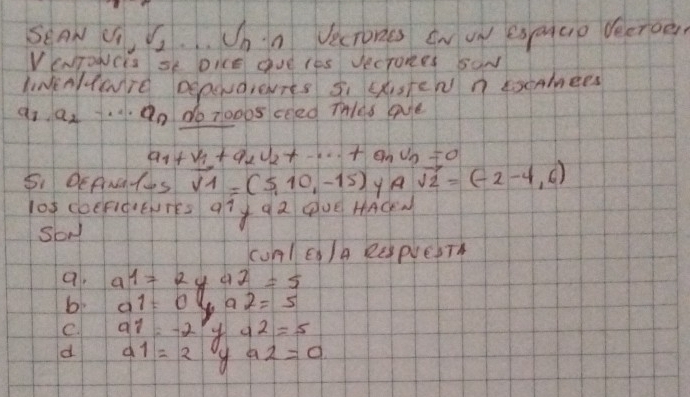 SEAN V1, V2 ... Vn n VECTORES EN UN ESPACIO VECTOR
V ENTONCES SE DICE QUE LOS VECTORES SON
LINEALMENTE DEPENDIENTES SI EXISTEN n ESCALARES
a1, a2 ... an no TODOS CERO TALES QUE
a1+V1+a2V2+ ... + anVn =0
Si DEFINIMOS V1 = (5,10,-15) y A V2 = (-2-4,6)
los COEFICIENTES a1 y a2 QUE HACEN
SON
CUAL ES LA RESPUESTA
a. a1= 2 y a2 = 5
b. a1= 0 y a2= 5
c a1=-2 y a2=5
d a1= 2 y a2=0